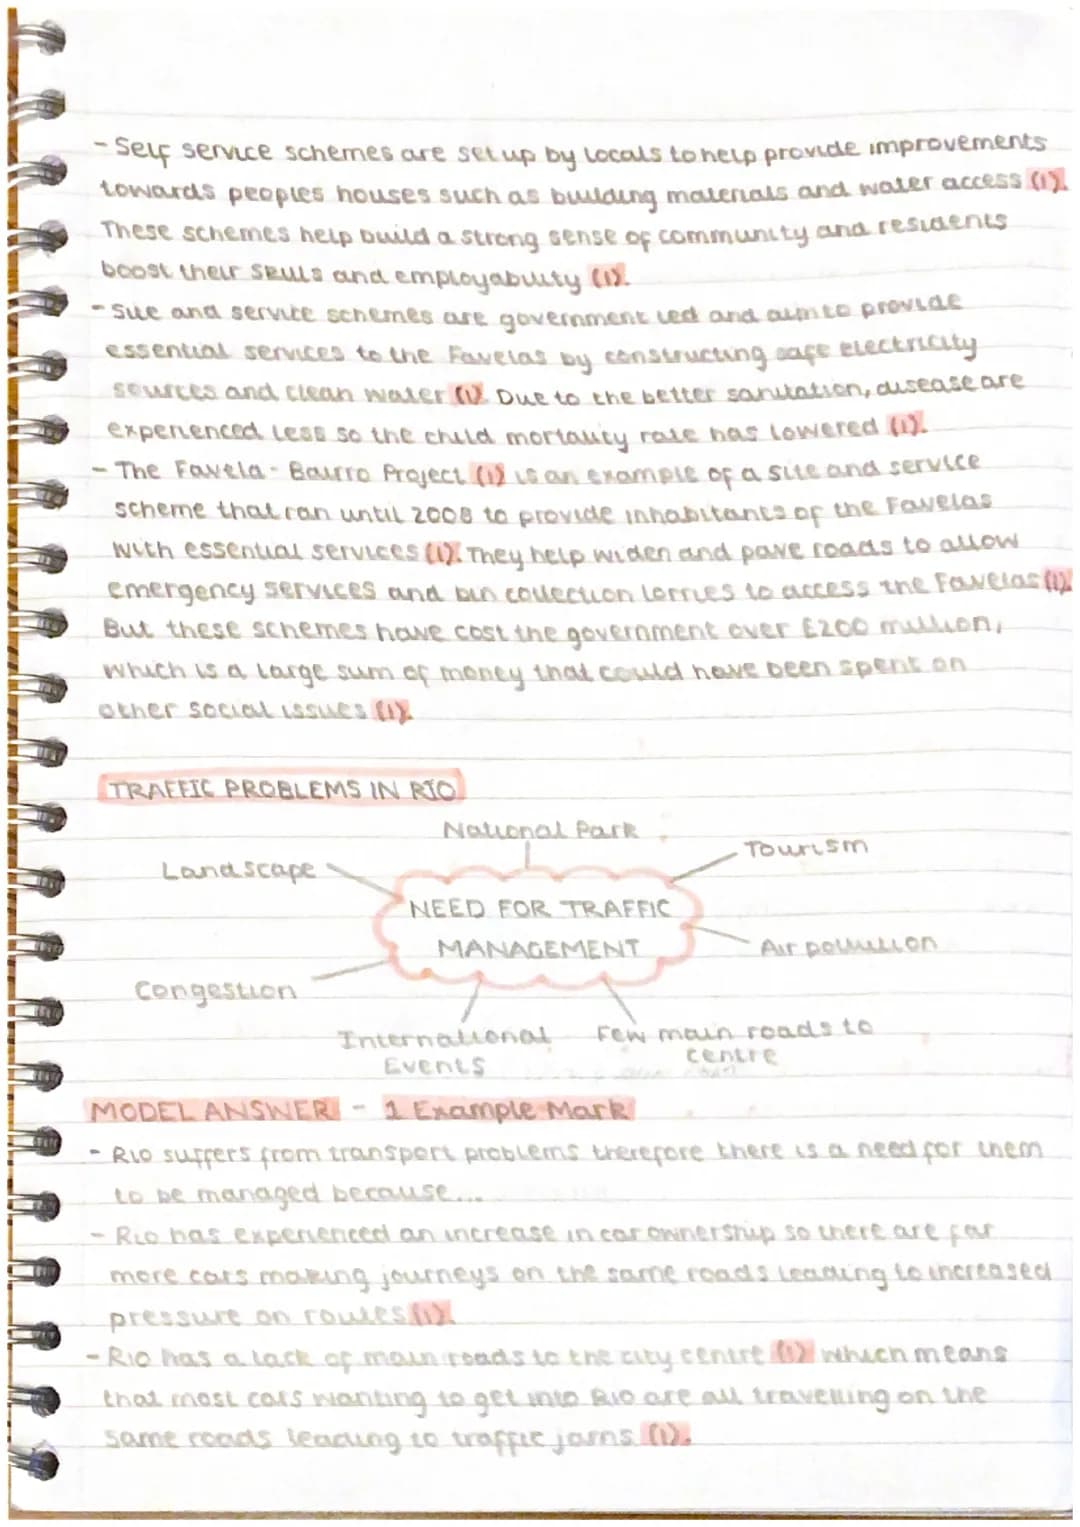 - Self service schemes are set up by locals to help provide improvements
towards peoples houses such as building materials and water access (1).
These schemes help build a strong sense of community and residents
boost their skills and employability (1).
- Site and service schemes are government led and aim to provide
essential services to the Favelas by constructing safe electricity
sources and clean water (1). Due to the better sanitation, disease are
experienced less so the child mortality rate has lowered (1).
- The Favela - Bairro Project (1) is an example of a site and service
scheme that ran until 2008 to provide inhabitants of the Favelas
with essential services (1). They help widen and pave roads to allow
emergency services and bin collection lorries to access the Favelas (1).
But these schemes have cost the government over £200 million,
which is a large sum of money that could have been spent on
other social issues (1).
TRAFFIC PROBLEMS IN RIO
National Park
Tourism
Landscape
NEED FOR TRAFFIC
MANAGEMENT
Air pollution
Congestion
International
Events
Few main roads to
centre
MODEL ANSWER - 1 Example Mark
- Rio suffers from transport problems therefore there is a need for them
to be managed because...
- Rio has experienced an increase in car ownership so there are far
more cars making journeys on the same roads leading to increased
pressure on routes (1).
- Rio has a lack of main roads to the city centre (1) which means
that most cars wanting to get into Rio are all travelling on the
same roads leading to traffic jams (1).